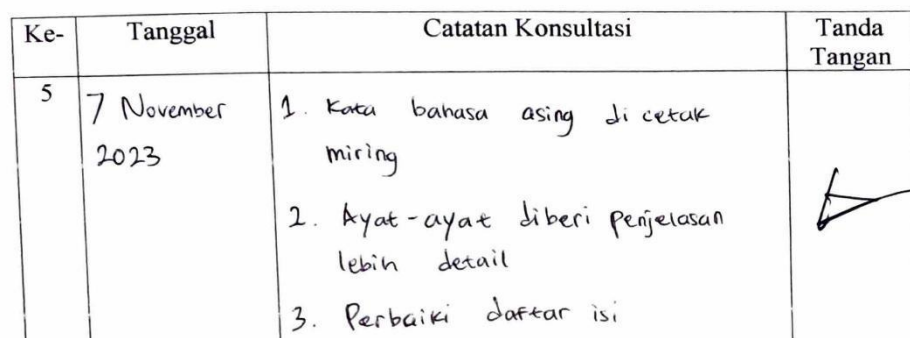 Ke- Tanggal Catatan Konsultasi Tanda
Tangan
5 7 November 1. Kata bahasa asing di cetak
2023 miring
2. Ayat-ayat diberi penjelasan
lebih detail
3. Perbaiki daftar isi